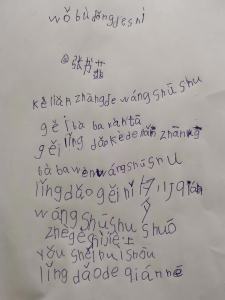 wǒ bù dǒng de shì
kě lián zhāng de wáng shū shu
gěi bà ba ràn tā
gěi lǐng dǎo kè de nán zhāng
bà ba wèn wáng shū shu
lǐng dǎo gěi nǐ
wáng shū shu shuō
zhè gè shì jiè
yǒu shéi huì shōu
lǐng dǎo de qián ne